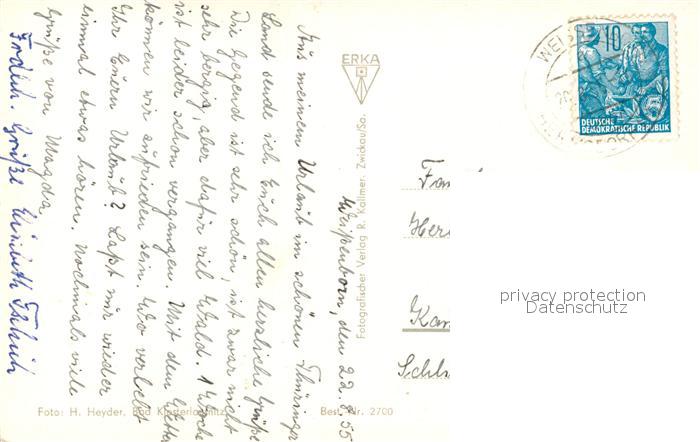 Weißenborn, den 22.8.55
Aus meinem Urlaub im schönen Thüringer
Land sende ich Euch allen herzliche Grüße
Die Gegend ist sehr schön, ist zwar nicht
sehr bergig, aber dafür viel Wald. 1 Woche
ist leider schon vergangen. Mit dem Wetter
können wir zufrieden sein. Wo verlebt
Ihr Euern Urlaub? Laßt mir wieder
einmal etwas hören. Nochmals viele
Grüße von Magda
Frdlich. Grüße Elisabeth
ERKA
Fotografischer Verlag R. Kallmer, Zwickau/Sa.
Foto: H. Heyder, Bad Klosterlausnitz
Best. Nr. 2700
10
DEUTSCHE
DEMOKRATISCHE REPUBLIK
Fam
Her
Kar
Schl
privacy protection
Datenschutz